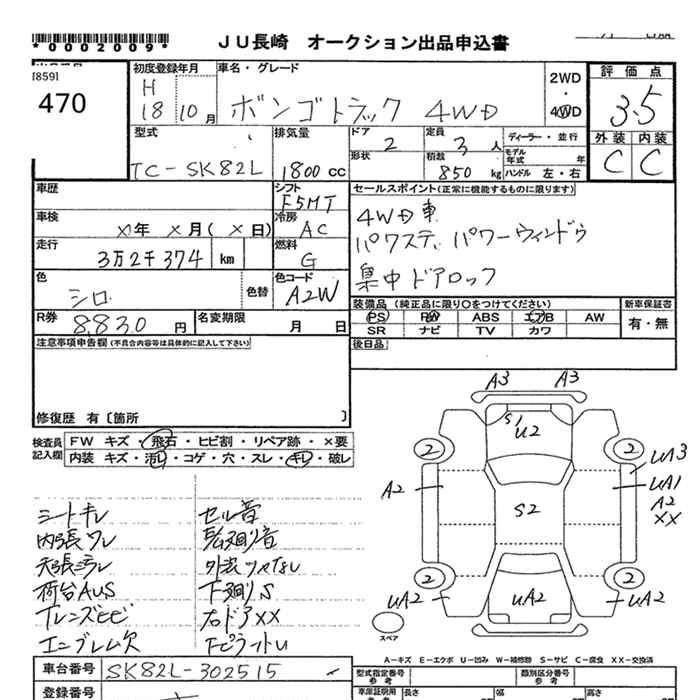 *0002009*
JU長崎 オークション出品申込書
[859]
470
初度登録年月
H
18 10 月
車名・グレード
ボンゴトラック 4WD
2WD
・
4WD
評価点
3.5
型式
TC-SK82L
排気量
1800 cc
ドア
2
定員
3 人
ディーラー・並行
形状
積載
850 kg
モデル年式 年
ハンドル 左・右
外装 内装
C C
車歴
シフト
F5MT
セールスポイント(正常に機能するものに限ります)
車検
X年 X月(X日)
冷房
AC
4WD車
パワステ パワーウィンドゥ
集中ドアロック
走行
3万2千374 km
燃料
G
色
シロ
色替
色コード
A2W
装備品 (純正品に限り○をつけてください)
新車保証書
PS PW ABS エアB AW
有・無
SR ナビ TV カワ
R券
8,830 円
名変期限
月 日
後日品
注意事項申告欄(不具合内容等は具体的に記入して下さい)
修復歴 有〔箇所 〕
検査員
記入欄
FW キズ・飛石・ヒビ割・リペア跡・×要
内装 キズ・汚れ・コゲ・穴・スレ・キレ・破レ
シートキレ
セル音
内張ワレ
天張ミラレ
荷台AUS
下廻りS
右ドアXX
エンブレム欠
A3 A3
S
U2
2 2
A2
S2
UA3
UA1
A2
XX
2 2
UA2
UA2
UA2
スペア
A-キズ E-エクボ U-凹み W-補修跡 S-サビ C-腐食 XX-交換済
車台番号
SK82L-302515
型式指定番号
参考
類別区分番号
参考
登録番号
車庫証明用
長さ
幅
高さ